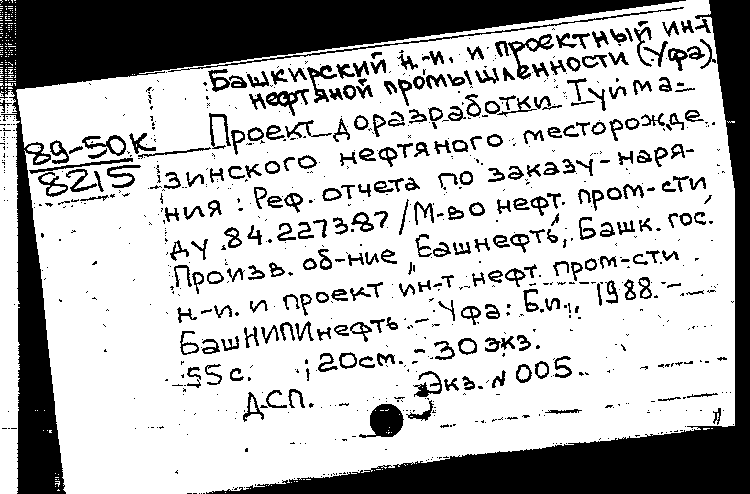 Башкирский н.-и. и проектный ин-т
нефтяной промышленности (Уфа).
89-50К
8215
Проект доразработки Туйма-
зинского нефтяного месторожде
ния: Реф. отчета по заказу-наря-
ду 84.2273.87 / М-во нефт. пром-сти
Произв. об-ние "Башнефть", Башк. гос.
н.-и. и проект ин-т нефт. пром-сти
БашНИПИнефть. - Уфа: Б.и., 1988. -
55 с. ; 20см. - 30 экз.
ДСП. Экз. N 005.